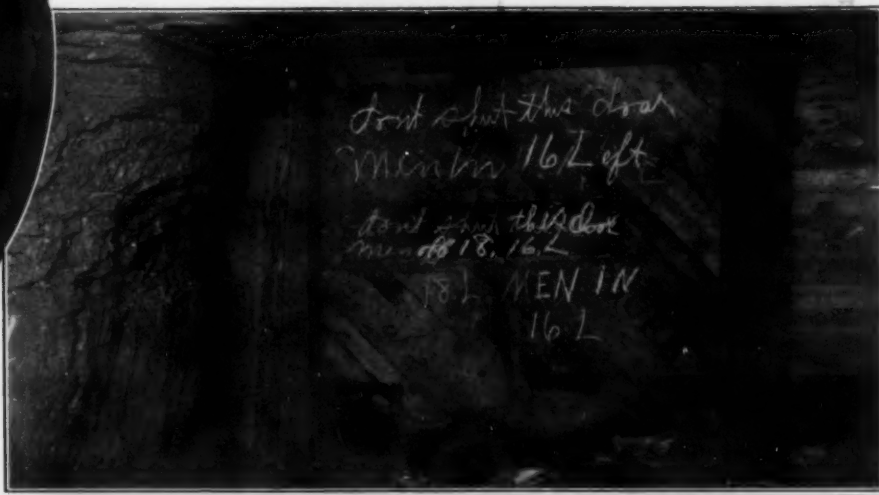 dont shut this door
Men in 16 Left
dont shut this door
men of 18, 16 L
18 L MEN IN
16 L